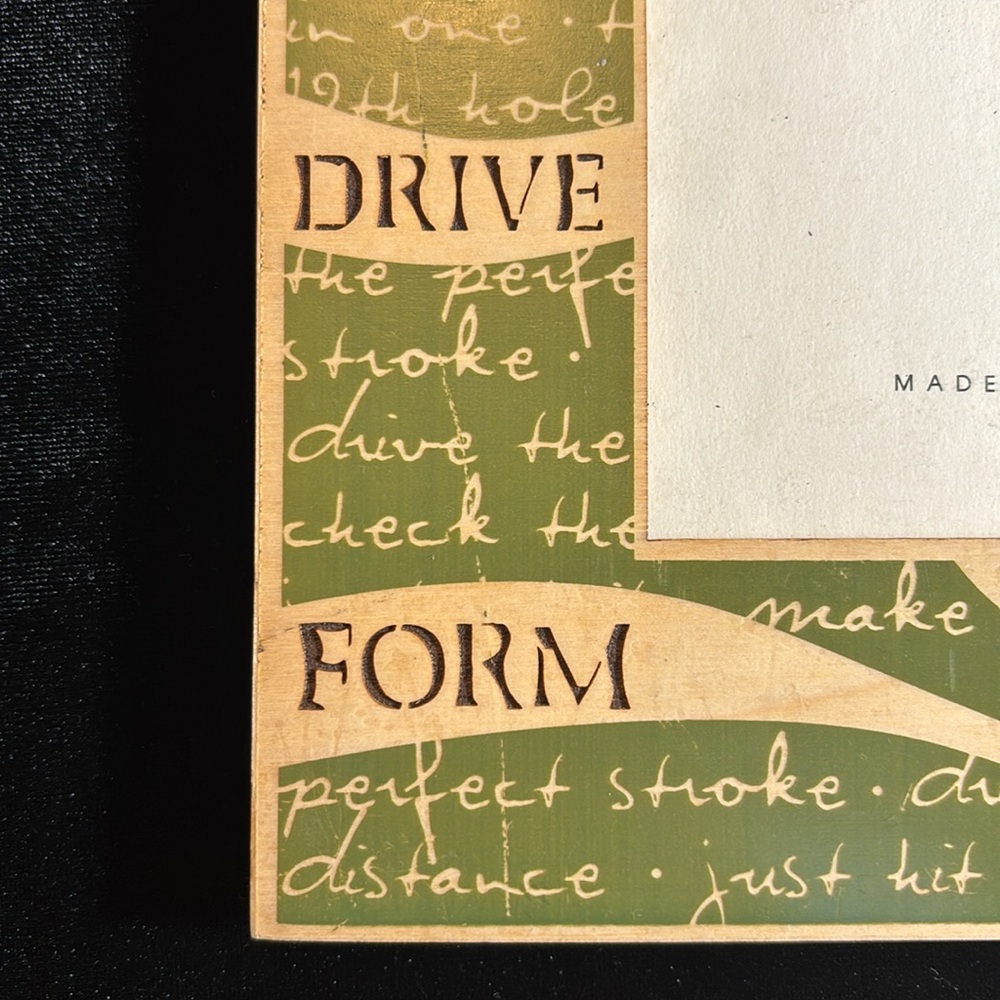 in one ·
19th hole
DRIVE
the perfe
stroke ·
drive the
check the
MADE
make
FORM
perfect stroke ·
distance · just hit